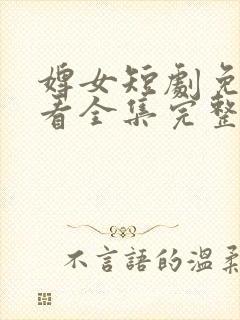 婢女短劇免
看全集完整
不言語的溫柔